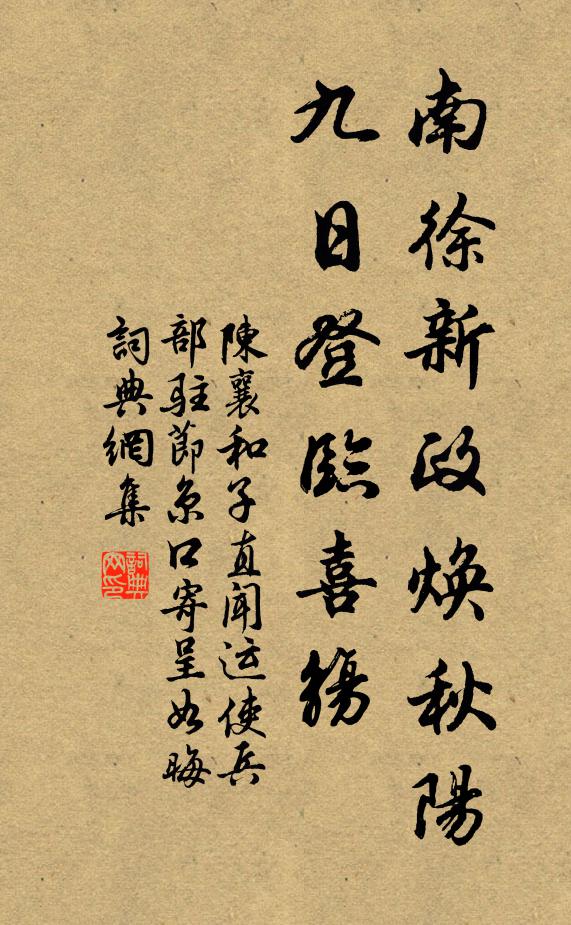 南徐新政煥秋陽
九日登臨喜觴
陳襄和子直聞运使兵
部駐節京口寄呈如晦
詞典網集
詞典网印